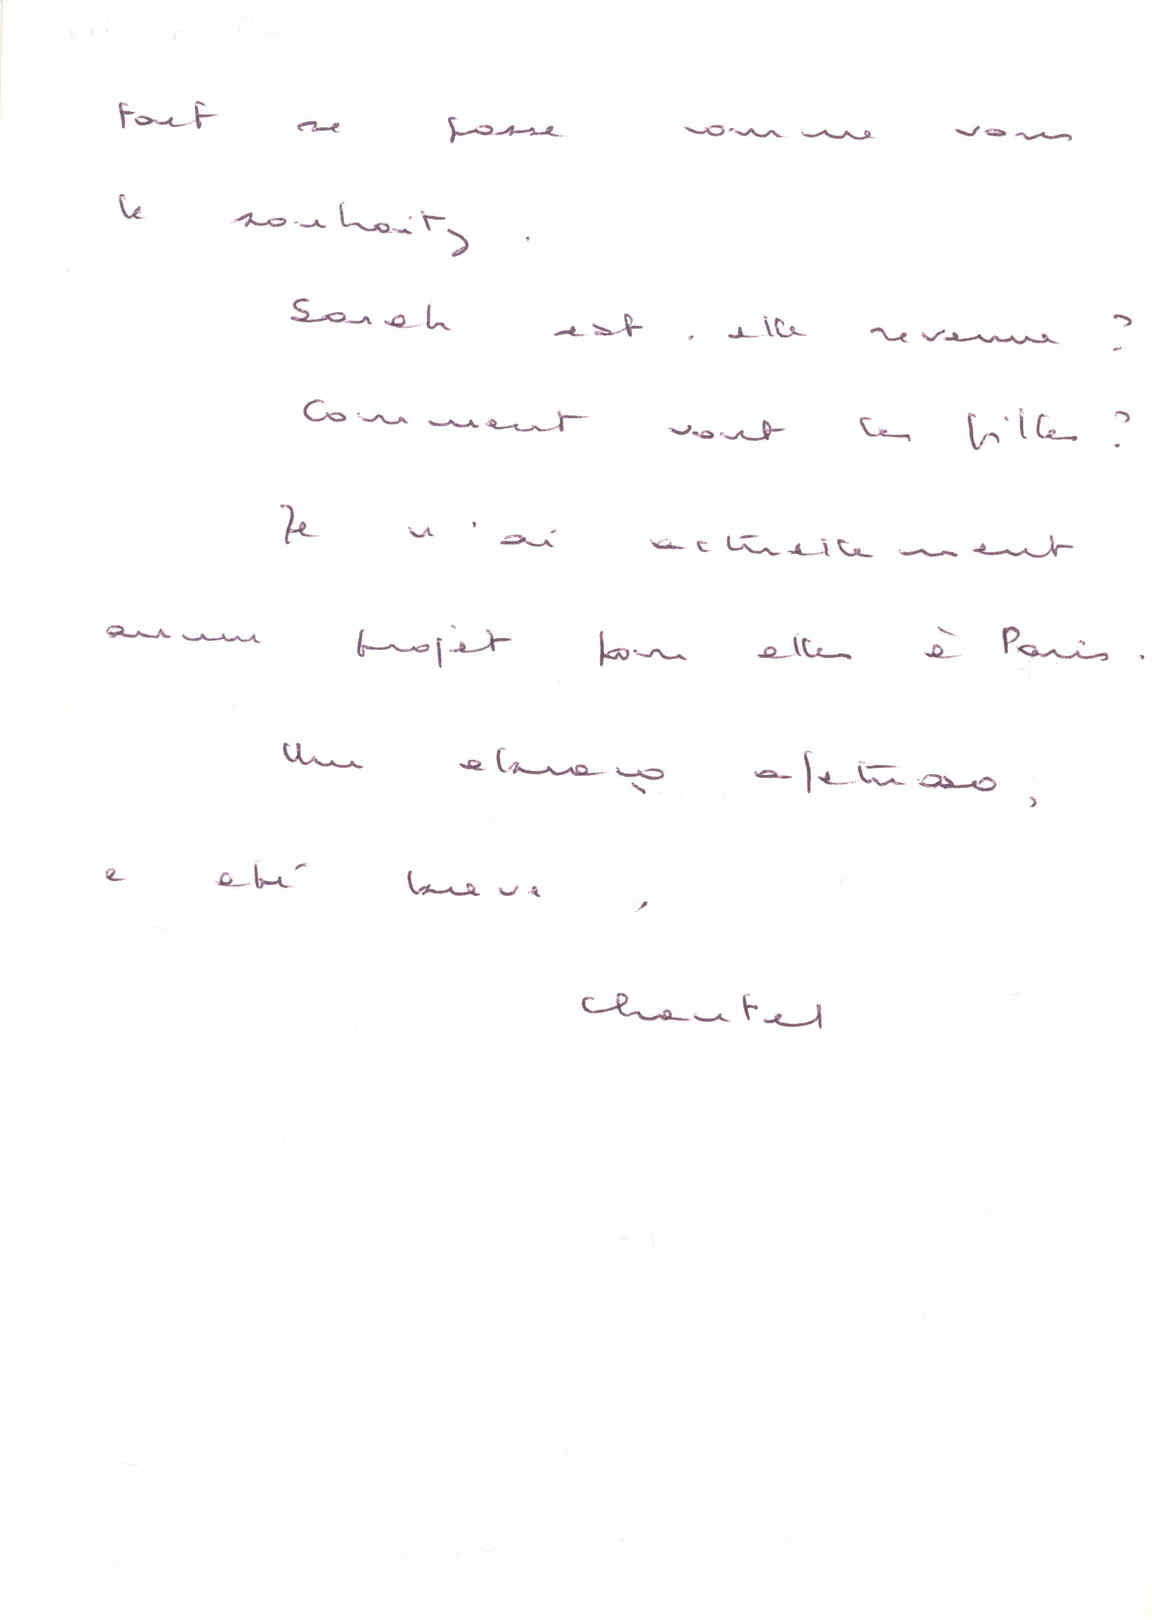 tout se passe comme vous
le souhaitez.
Sarah est-elle revenue ?
Comment vont les filles ?
Je n'ai actuellement
aucun projet pour elles à Paris.
Um abraço afetuoso,
e até breve,
Chantal